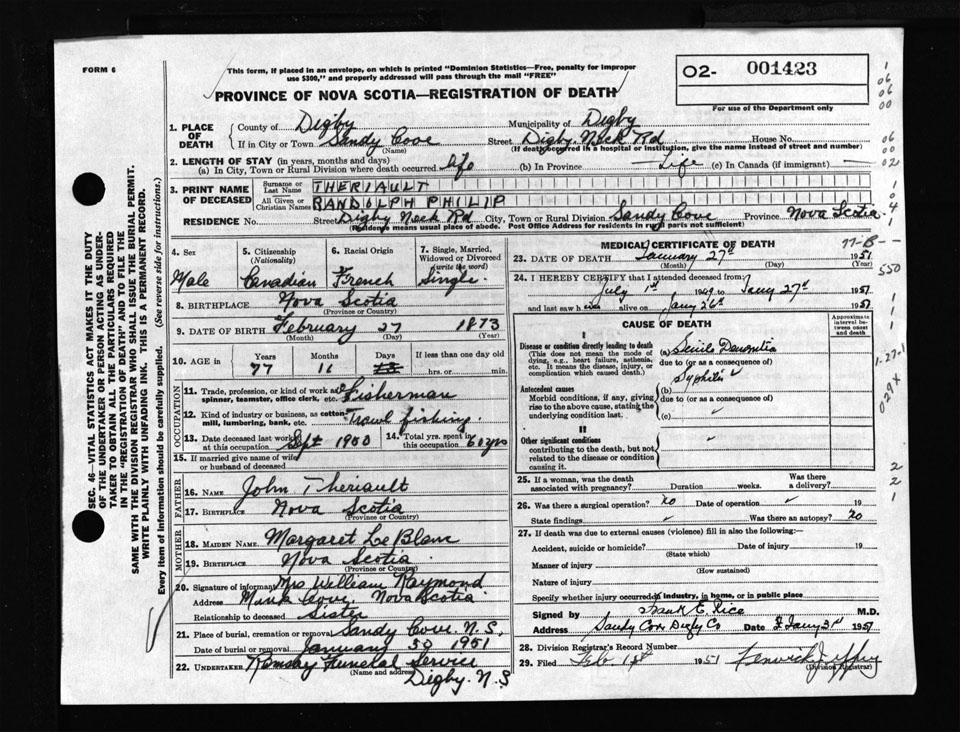 FORM 6
This form, if placed in an envelope, on which is printed "Dominion Statistics—Free, penalty for improper
use $300," and properly addressed will pass through the mail "FREE"
PROVINCE OF NOVA SCOTIA—REGISTRATION OF DEATH
O2- 001423
For use of the Department only
1. PLACE OF DEATH
County of Digby Municipality of Digby
If in City or Town Sandy Cove (Name) Street Digby Neck Rd House No.
(If death occurred in a hospital or institution, give the name instead of street and number)
2. LENGTH OF STAY (in years, months and days)
(a) In City, Town or Rural Division where death occurred life (b) In Province Life (c) In Canada (if immigrant) —
3. PRINT NAME OF DECEASED
Surname or Last Name THERIAULT
All Given or Christian Names RANDOLPH PHILIP
RESIDENCE No. Street Digby Neck Rd City, Town or Rural Division Sandy Cove Province Nova Scotia
(Residence means usual place of abode. Post Office Address for residents in rural parts not sufficient)
4. Sex Male
5. Citizenship (Nationality) Canadian
6. Racial Origin French
7. Single, Married, Widowed or Divorced (write the word) Single
8. BIRTHPLACE Nova Scotia
(Province or Country)
9. DATE OF BIRTH February 27 1873
(Month) (Day) (Year)
10. AGE in Years 77 Months 11 Days If less than one day old hrs. or min.
OCCUPATION
11. Trade, profession, or kind of work as
spinner, teamster, office clerk, etc. Fisherman
12. Kind of industry or business, as cotton
mill, lumbering, bank, etc. Trawl fishing
13. Date deceased last worked at this occupation Sept 1900
14. Total yrs. spent in this occupation 60 yrs
15. If married give name of wife
or husband of deceased
FATHER
16. NAME John Theriault
17. BIRTHPLACE Nova Scotia
(Province or Country)
MOTHER
18. MAIDEN NAME Margaret LeBlanc
19. BIRTHPLACE Nova Scotia
(Province or Country)
20. Signature of informant Mrs William Raymond
Address Mink Cove, Nova Scotia
Relationship to deceased Sister
21. Place of burial, cremation or removal Sandy Cove N.S.
Date of burial or removal January 30 1951
22. UNDERTAKER Ramsay Funeral Service
(Name and address) Digby. N.S
MEDICAL CERTIFICATE OF DEATH
77-B-
23. DATE OF DEATH January 27th 1951
(Month) (Day) (Year)
24. I HEREBY CERTIFY that I attended deceased from:
July 1st 1949 to Jany 27th 1951
and last saw h alive on Jany 26th 1951
CAUSE OF DEATH
Approximate interval between onset and death
Disease or condition directly leading to death
(This does not mean the mode of dying, e.g., heart failure, asthenia, etc. It means the disease, injury, or complication which caused death.)
(a) Senile Dementia
due to (or as a consequence of)
Syphilis
Antecedent causes
Morbid conditions, if any, giving rise to the above cause, stating the underlying condition last.
(b)
due to (or as a consequence of)
(c)
II
Other significant conditions
contributing to the death, but not related to the disease or condition causing it.
25. If a woman, was the death
associated with pregnancy? Duration weeks. Was there a delivery?
26. Was there a surgical operation? No Date of operation 19
State findings Was there an autopsy? No
27. If death was due to external causes (violence) fill in also the following:—
Accident, suicide or homicide? Date of injury 19
(State which)
Manner of injury
(How sustained)
Nature of injury
Specify whether injury occurred in industry, in home, or in public place
Signed by Frank E. Rice M.D.
Address Sandy Cove Digby Co Date 1951
28. Division Registrar's Record Number
29. Filed Feb 1st 1951
(Division Registrar)
SEC. 46—VITAL STATISTICS ACT MAKES IT THE DUTY
OF THE UNDERTAKER OR PERSON ACTING AS UNDER-
TAKER TO OBTAIN ALL THE PARTICULARS REQUIRED
IN THE "REGISTRATION OF DEATH" AND TO FILE THE
SAME WITH THE DIVISION REGISTRAR WHO SHALL ISSUE THE BURIAL PERMIT.
WRITE PLAINLY WITH UNFADING INK. THIS IS A PERMANENT RECORD.
Every item of information should be carefully supplied. (See reverse side for instructions.)
550
1-27-1
029x
2
2
1